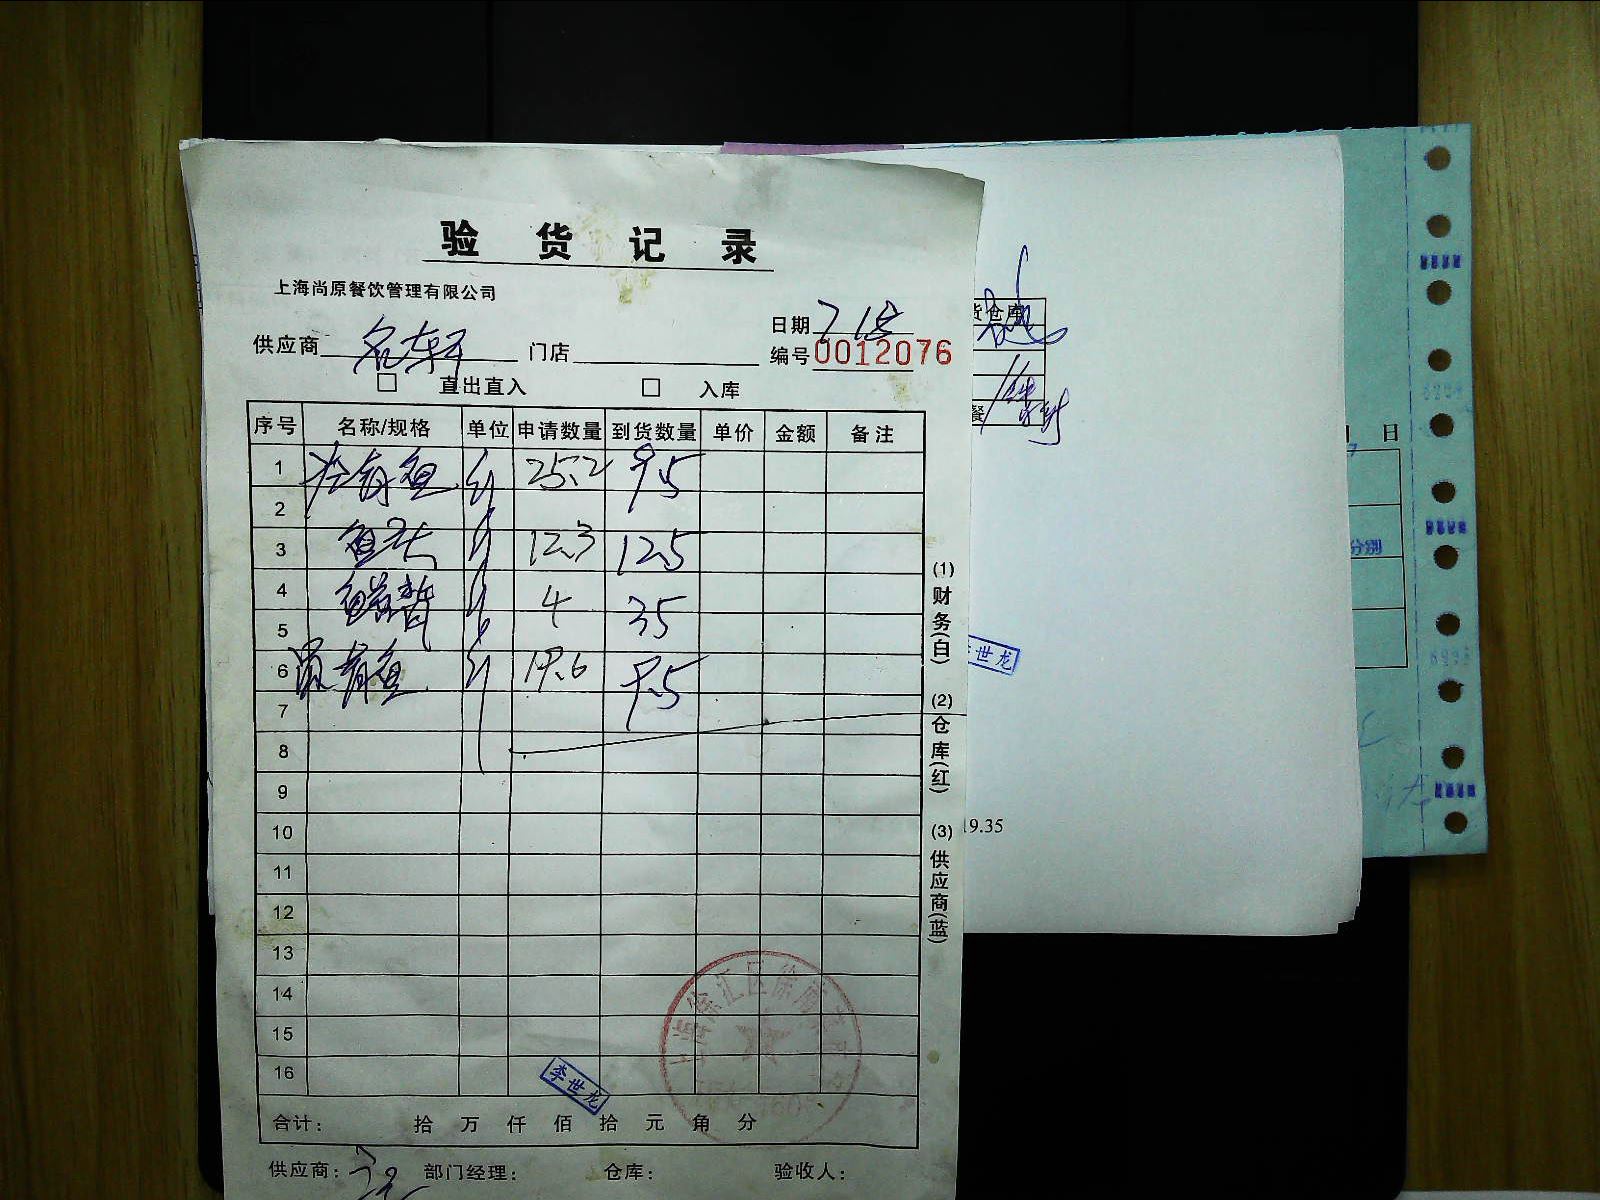 验货记录
上海尚原餐饮管理有限公司
日期
供应商 名轩 门店 编号 0012076
□ 直出直入 □ 入库
序号 名称/规格 单位 申请数量 到货数量 单价 金额 备注
1 青鱼 25.2 9.5
2
3 鱼头 12.3 12.5
4 4 35
5
6 青鱼 19.6 9.5
7
8
9
10
11
12
13
14
15
16
合计: 拾 万 仟 佰 拾 元 角 分
供应商: 部门经理: 仓库: 验收人:
(1)财务(白) (2)仓库(红) (3)供应商(蓝)
李世龙
货仓库
餐
世龙
19.35
日
分别